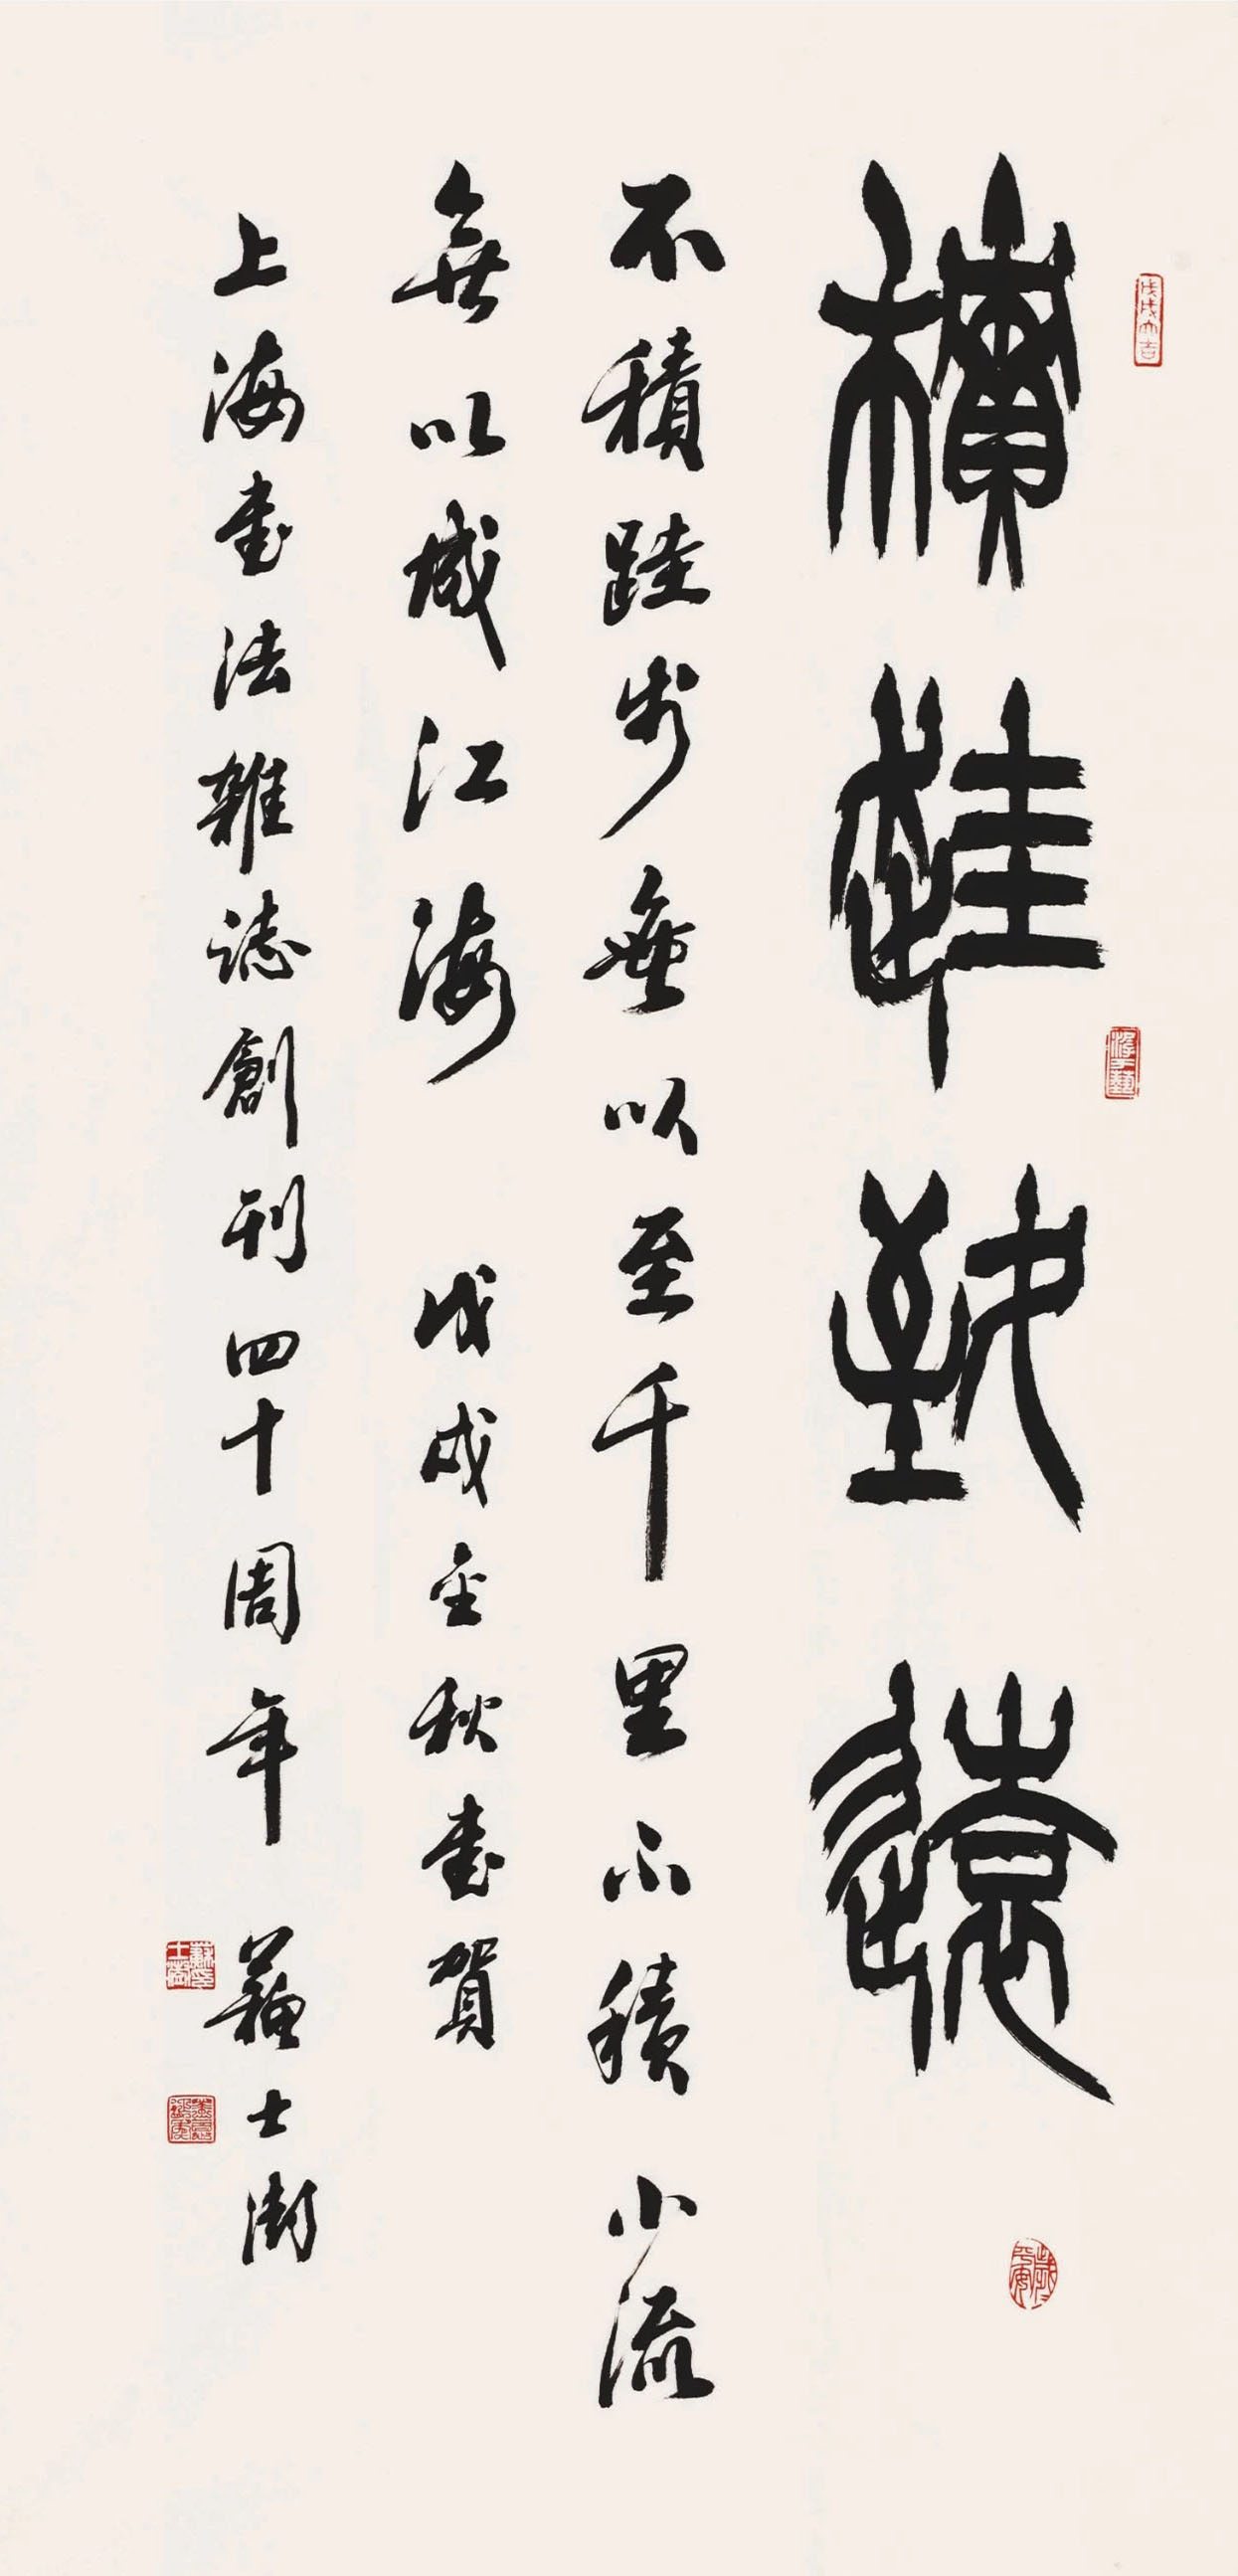 戊戌大吉
積跬致遠
游于藝
不積跬步無以至千里不積小流
無以成江海 戊戌金秋書賀
上海書法雜誌創刊四十周年 蘇士澍